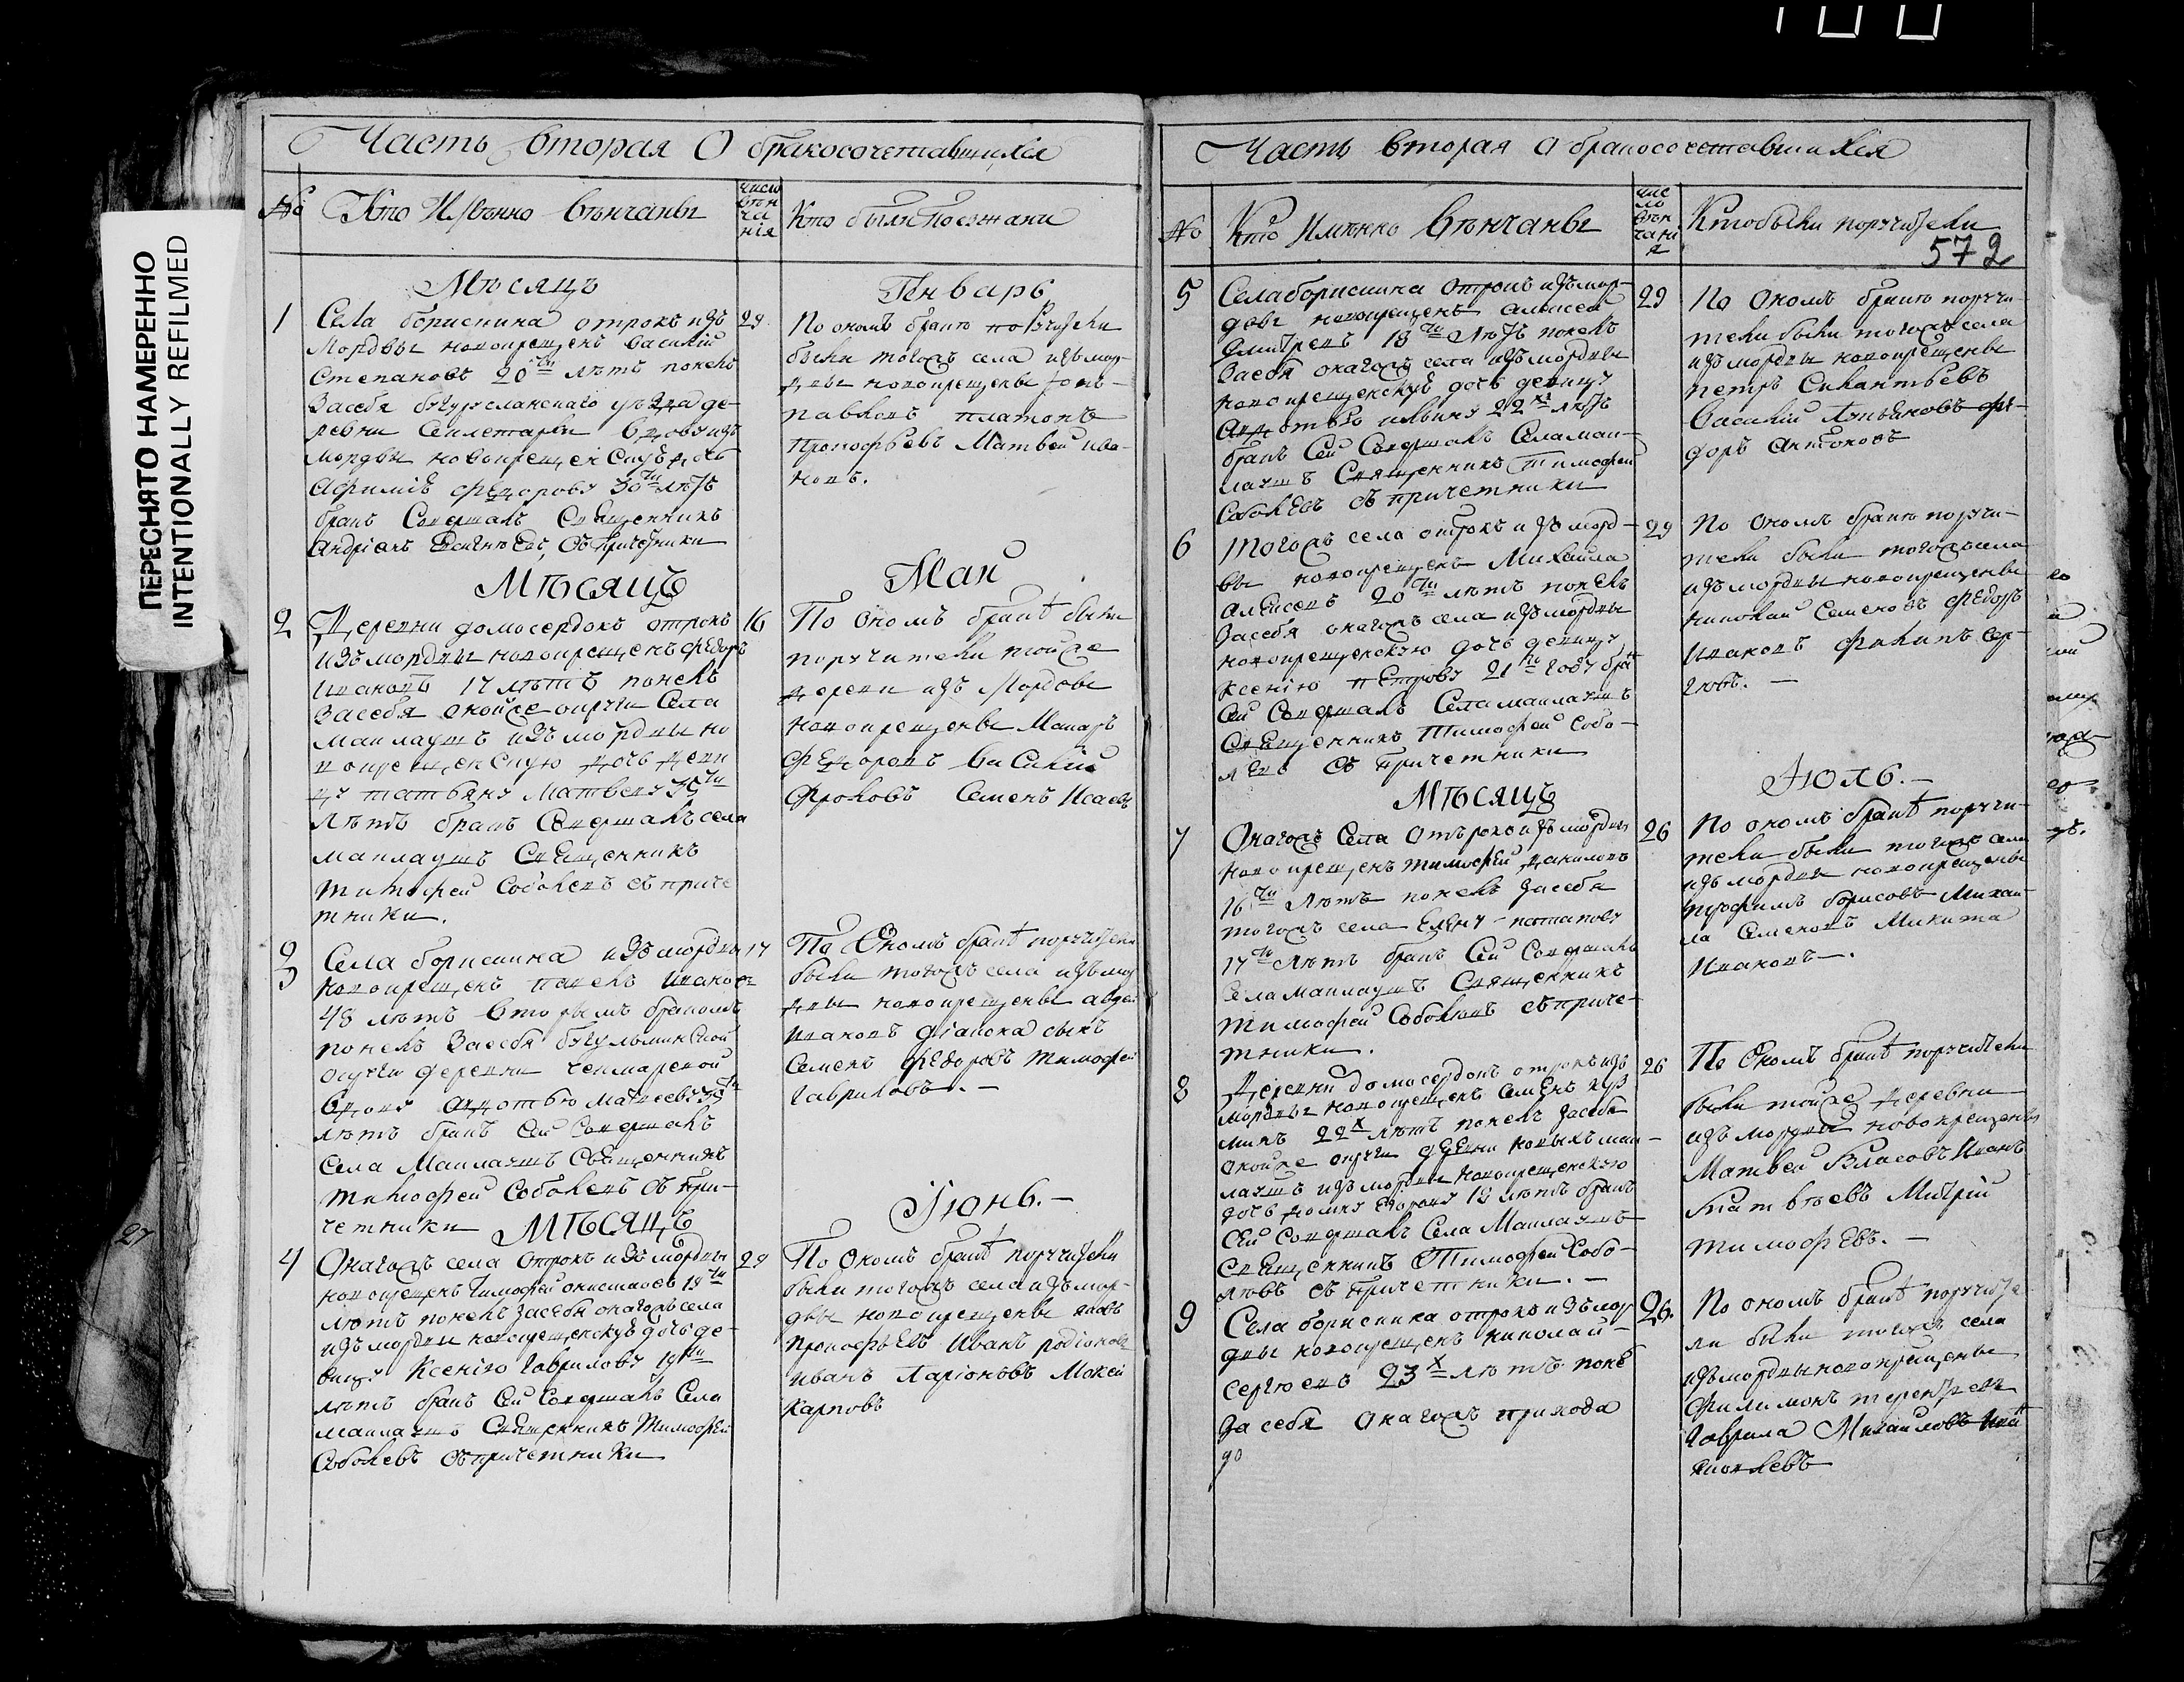 ПЕРЕСНЯТО НАМЕРЕННО
INTENTIONALLY REFILMED
Часть вторая О бракосочетавшихся
№ Кто Имянно венчаны
число
вѣн
ча
нія
Кто были поезжани
Мѣсяцъ Генварь
1
Села борискина отрокъ изъ
мордвы новокрещенъ василій
Степановъ 20ти лѣтъ понелъ
засебя бугурусланскаго уѣзда де-
ревни вдову изъ
мордвы новокрещенскую дочь
федорову 30ти лѣтъ
бракъ Совершалъ Священникъ
андріанъ съ причетники
29
По ономъ бракѣ поручители
были тогожъ села изъ мор-
двы новокрещены
павловъ платонъ
прокофьевъ Матвей ива-
новъ.
Мѣсяцъ Маи
2
Деревни домосердокъ отрокъ
изъ мордвы новокрещенъ федоръ
ивановъ 17 лѣтъ понелъ
засебя оной же округи Села
маклаушъ изъ мордвы но
вокрещенскую дочь деви
цу татьяну Матвеву 35ти
лѣтъ бракъ Совершалъ села
маклаушъ Священникъ
тимофеи Соболевъ съ приче
тники.
16
По ономъ бракѣ были
поручители тойже
деревни изъ Мордвы
новокрещены Макаръ
федоровъ василий
фроловъ Семенъ Исаевъ
3
Села борискина изъ мордвы
новокрещенъ павелъ ивановъ
48 лѣтъ вторымъ бракомъ
понелъ засебя бугульминской
округи деревни чекмаревой
вдову авдотью матвееву 35ти
лѣтъ бракъ Сеи Совершалъ
села Маклаушъ Священникъ
тимофеи Соболевъ съ при-
четники
17
По Ономъ бракѣ поручители
были тогожъ села изъ мор
двы новокрещены авдеи
ивановъ сынъ
Семенъ федоровъ тимофеи
гавриловъ. -
Мѣсяцъ Іюнь. -
4
Онагожъ села отрокъ изъ мордвы
новокрещенъ тимофеи онисимовъ 18ти
лѣтъ понелъ засебя онагожъ села
изъ мордвы новокрещенскую дочь де-
вицу Ксенію гаврилову 19ти
лѣтъ бракъ Сеи Совершалъ Села
маклаушъ Священникъ Тимофеи
Соболевъ съ причетники
29
По Ономъ бракѣ поручители
были тогожъ села изъ мор-
двы новокрещены
прокофьевъ иванъ родіоновъ
иванъ Ларіоновъ Мокеи
карповъ
Часть вторая О бракосочетавшихся
№ Кто Имянно венчаны
чис
ло
вѣн
чані
я
Кто были поручители
572
5
Села борискина отрокъ изъ мор-
двы новокрещенъ алексеи
дмитревъ 18ти лѣтъ понелъ
засебя онагожъ села изъ мордвы
новокрещенскую дочь девицу
авдотью ильину 22хъ лѣтъ
бракъ Сеи Совершалъ Села мак-
лаушъ Священникъ Тимофеи
Соболевъ съ причетники
29
По Ономъ бракѣ поручи-
тели были тогожъ села
изъ мордвы новокрещены
петръ Силантьевъ
василий Лукьяновъ фе-
доръ антоновъ
6
Тогожъ села отрокъ изъ морд-
вы новокрещенъ Михайла
алексеевъ 20ти лѣтъ понелъ
засебя онагожъ села изъ мордвы
новокрещенскую дочь девицу
ксенію петрову 21го году бракъ
Сеи Совершалъ Села маклаушъ
Священникъ Тимофеи Собо-
левъ съ причетники
29
По Ономъ бракѣ поручи-
тели были тогожъ села
изъ мордвы новокрещены
николаи Семеновъ федоръ
ивановъ филипъ Сер-
геевъ. -
Мѣсяцъ Июль. -
7
Онагожъ Села отрокъ изъ мордвы
новокрещенъ тимофеи даниловъ
16ти Лѣтъ понелъ засебя
тогожъ села Елену потапову
17ти лѣтъ бракъ Сеи Совершалъ
Села Маклаушъ Священникъ
Тимофеи Соболевъ съ приче-
тники.
26
По ономъ бракѣ поручи-
тели были тогожъ села
изъ мордвы новокрещены
трофимъ борисовъ Михаи-
ла Семеновъ Микита
ивановъ. -
8
Деревни домосердокъ отрокъ изъ
мордвы новокрещенъ Семенъ куз
минъ 22х лѣтъ понелъ засебя
онойже округи деревни новыхъ мак-
лаушъ изъ мордвы новокрещенскую
дочь 18 лѣтъ бракъ
Сей Совершалъ Села Маклаушъ
Священникъ Тимофеи Собо-
левъ съ причетники. -
26
По Ономъ бракѣ поручители
были тойже деревни
изъ мордвы новокрещены
Матвеи Власовъ Иванъ
Матвѣевъ Митрій
тимофѣевъ. -
9
Села борискина отрокъ изъ мор
двы новокрещенъ николаи -
сергѣевъ 23х лѣтъ понелъ
за себя онагожъ прихода
до
26.
По ономъ бракѣ поручите-
ли были тогожъ села
изъ мордвы новокрещены
филимонъ терентьевъ
гаврила Михаиловъ